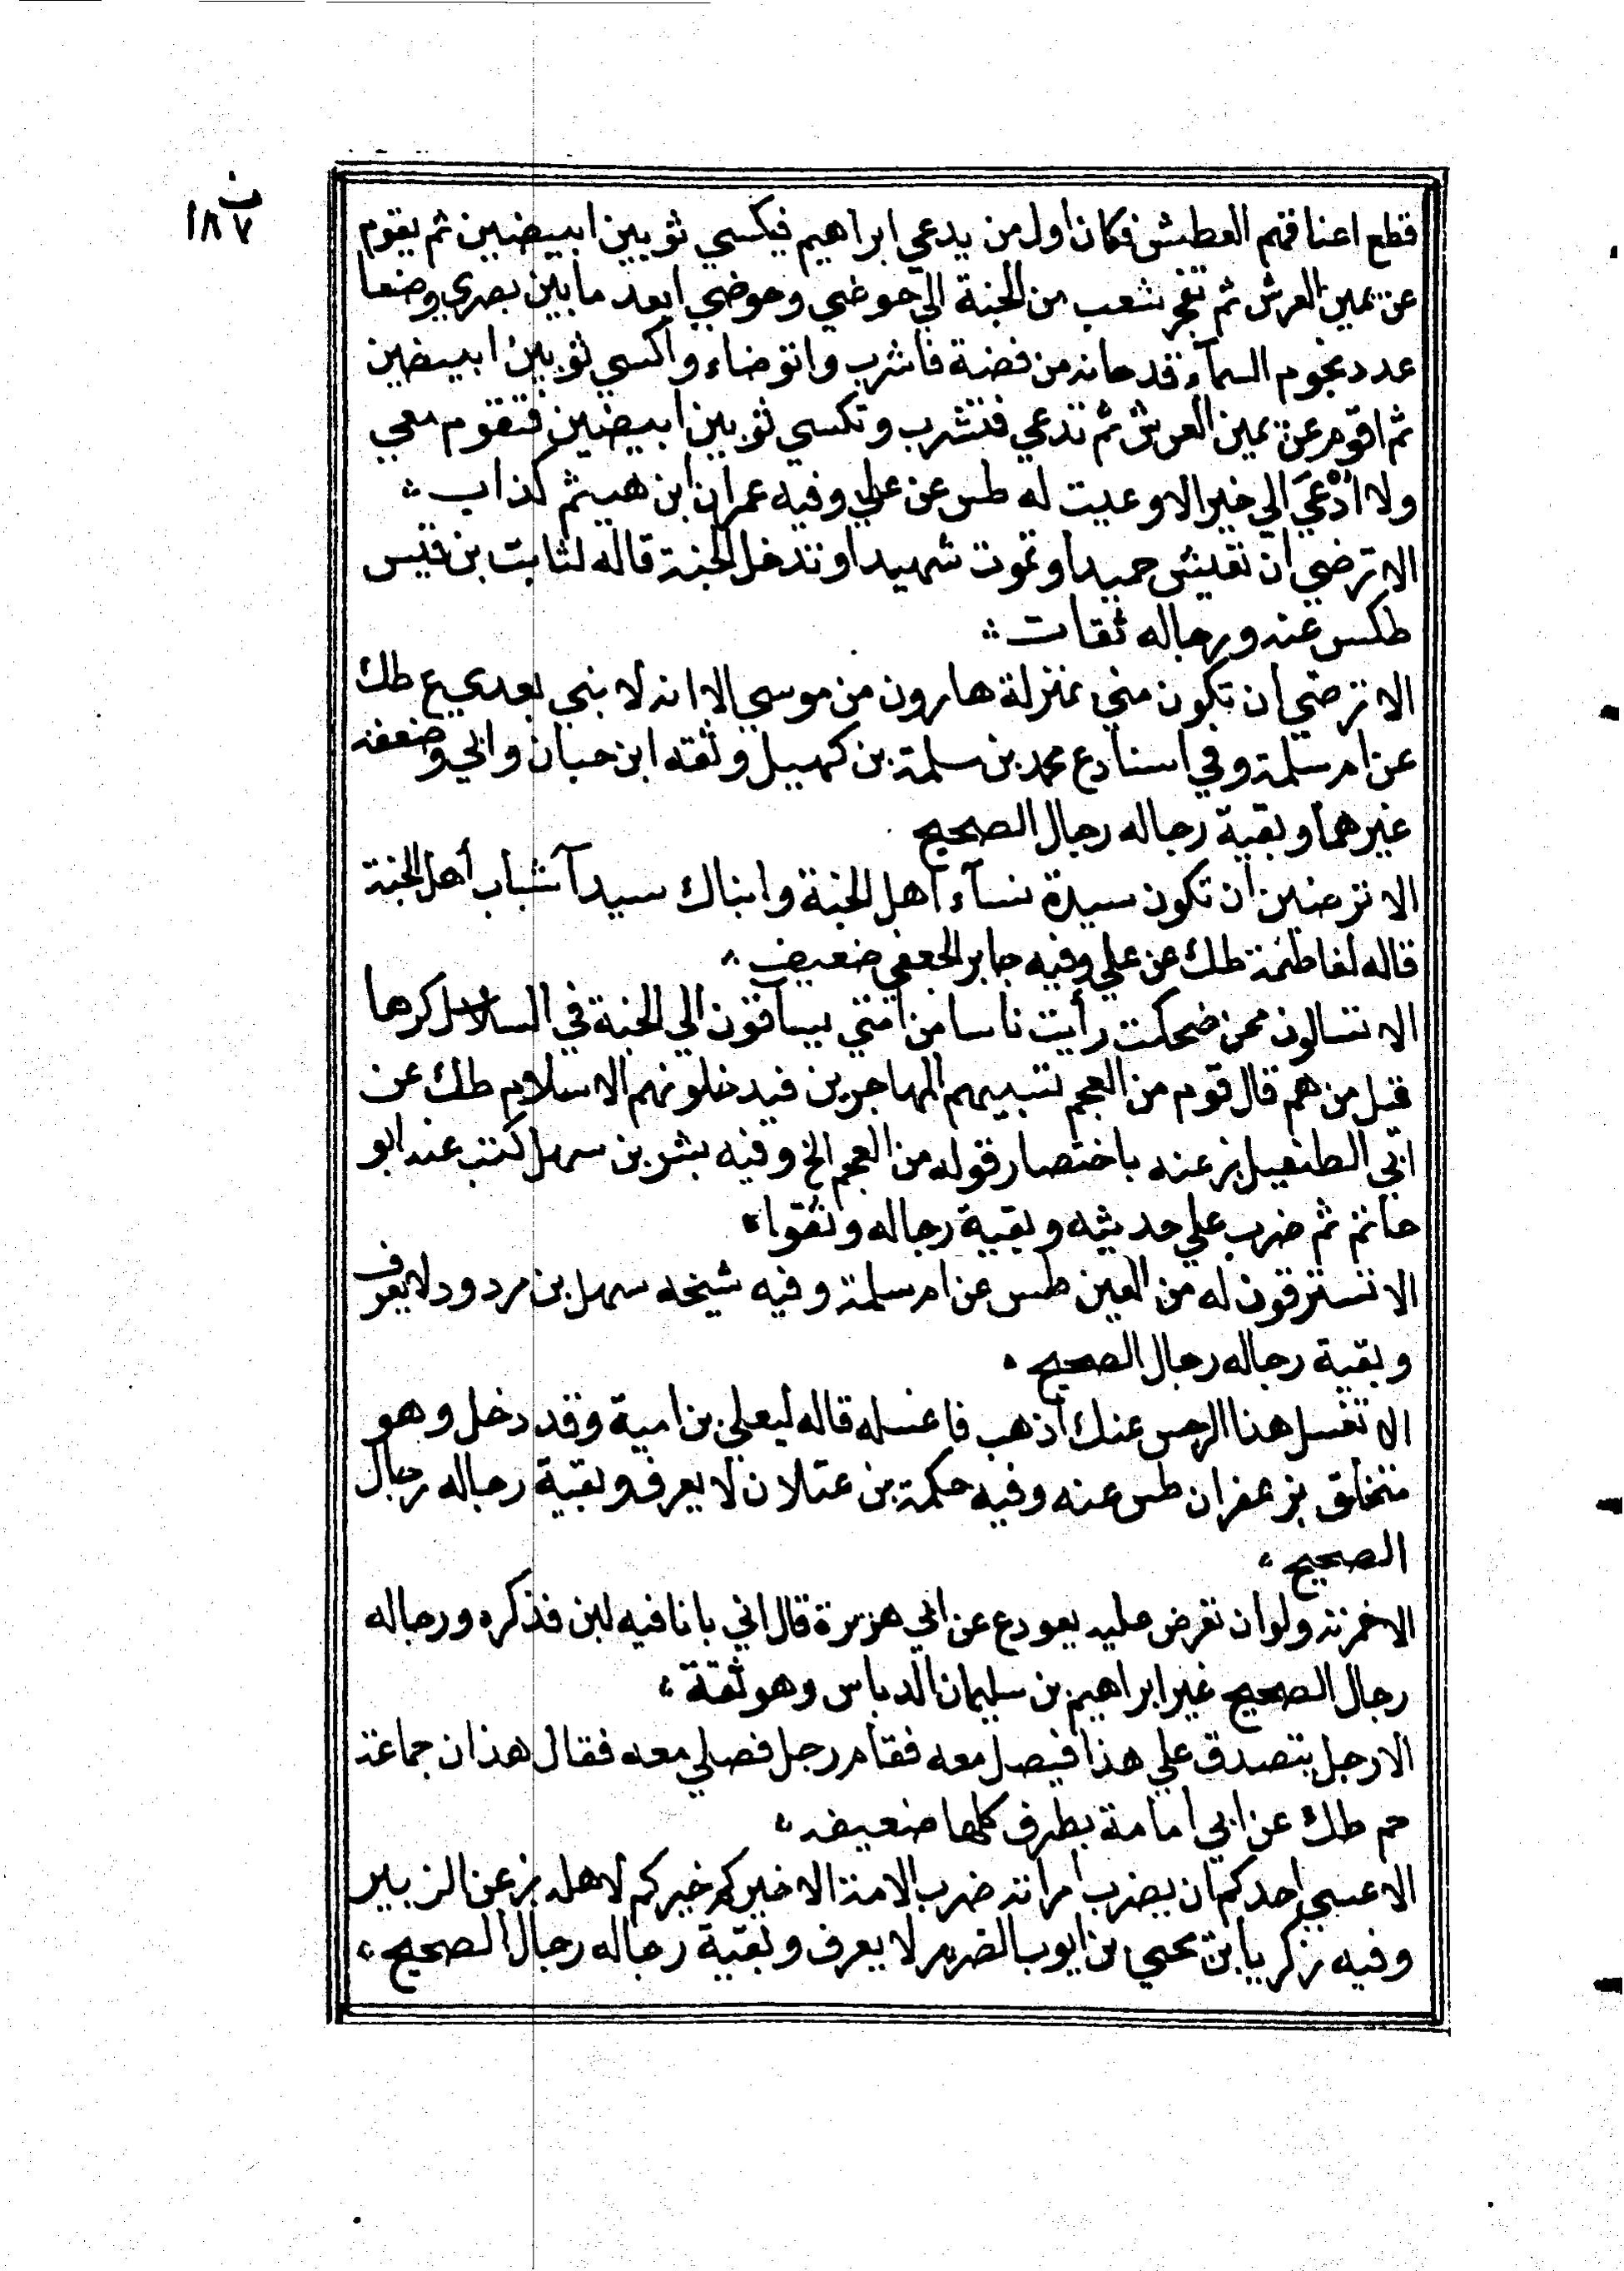 ث
١٨٧
قطع اعناقهم العطش فكان اول من يدعي ابراهيم فيكسي ثوبين ابيضين ثم يقوم
عن يمين العرش ثم تفجر شعب من الجنة الي حوضي وحوضي ابعد ما بين بصري وصنعا
عدد نجوم السمآء قدحانه من فضة فاشرب واتوضاء واكسي ثوبين ابيضين
ثم اقوم عن يمين العرش ثم تدعي فتشرب وتكسي ثوبين ابيضين فتقوم معي
ولا ادعي الي خير الا وعيت له طس عن علي وفيه عمران ابن هيثم كذاب
الا ترضي ان تعيش حميدا وتموت شهيدا وتدخل الجنة قاله لثابت بن قيس
طكس عنه ورجاله ثقات
الا ترضي ان تكون مني بمنزلة هارون من موسي الا انه لا نبي بعدي ع طك
عن ام سلمة وفي اسناد ع محمد بن سلمة بن كهيل وثقه ابن حبان وابي وضعفه
غيرهما وبقية رجاله رجال الصحيح
الا ترضين ان تكون سيدة نسآء اهل الجنة وابناك سيدآ شباب أهل الجنة
قاله لفاطمة طك عن علي وفيه جابر الجعفي ضعيف
الا تسالون ممن ضحكت رأيت ناسا من امتي يساقون الي الجنة في السلاسل كرها
قيل من هم قال قوم من العجم تسبيهم المهاجرين فيدخلونهم الاسلام طك عن
ابي الطفيل بز عنه باختصار قوله من العجم الخ وفيه بشر بن سهل كتب عنه ابو
حاتم ثم ضرب علي حديثه وبقية رجاله وثقوا
الا تسترقون له من العين طس عن ام سلمة وفيه شيخه سهل بن مردود لا يعرف
وبقية رجاله رجال الصحيح
الا تغسل هذا الرجس عنك اذهب فاغسله قاله ليعلي بن امية وقد دخل وهو
متخلق بزعفران طس عنه وفيه حكمة بن عتلان لا يعرف وبقية رجاله رجال
الصحيح
الا خمرته ولو ان تعرض عليه بعود ع عن ابي هريرة قال اني بانا فيه لبن فذكره ورجاله
رجال الصحيح غير ابراهيم بن سليمان الدباس وهو ثقة
الا رجل يتصدق علي هذا فيصل معه فقام رجل فصلي معه فقال هذان جماعة
حم طك عن ابي امامة بطرف كلها ضعيفه
الا عسي احدكم ان يضرب امراته ضرب الامة الا خيركم خيركم لاهله بز عن الزبير
وفيه زكريا ابن يحيي بن ايوب الضرير لا يعرف وبقية رجاله رجال الصحيح